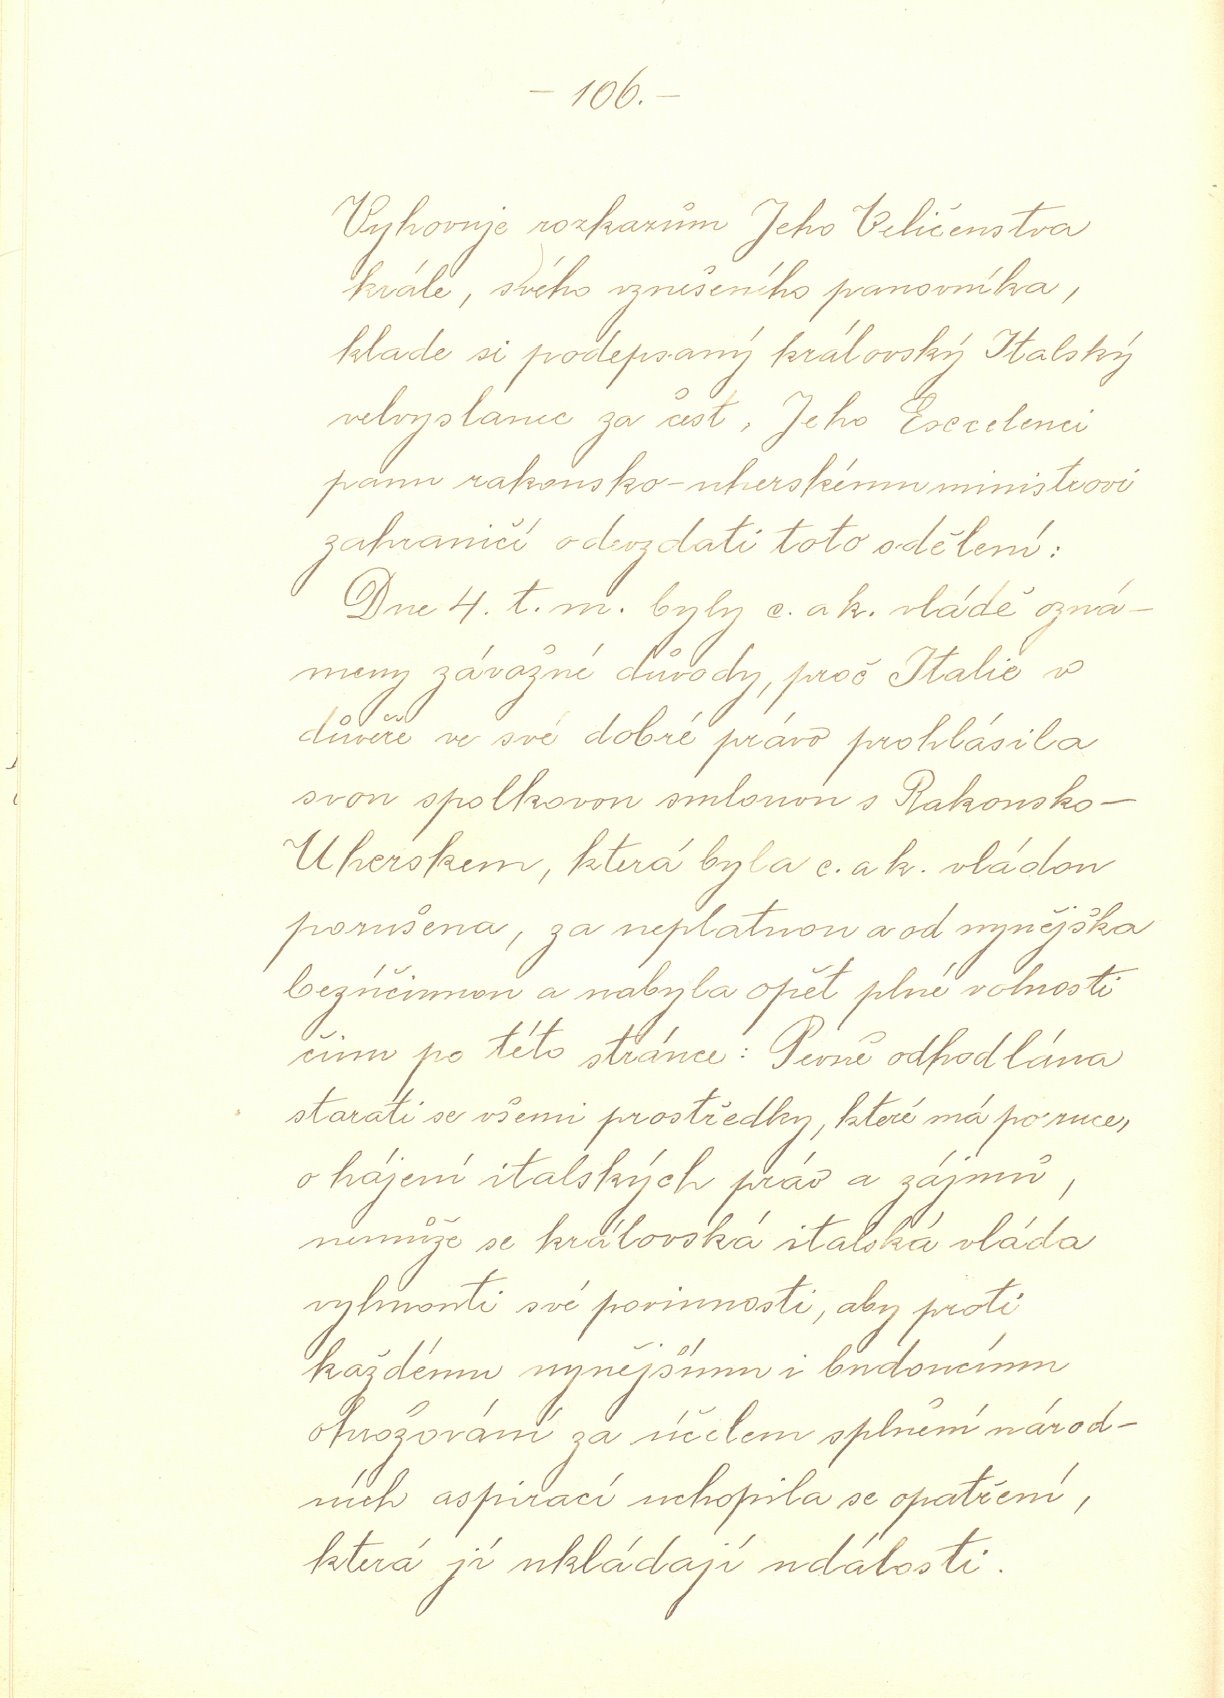 – 106. –
Vyhovuje rozkazům Jeho Veličenstva
krále, svého vznešeného panovníka,
klade si podepsaný královský Italský
velvyslanec za čest, Jeho Exccelenci
panu rakousko-uherskému ministrovi
zahraničí odevzdati toto sdělení:
Dne 4. t. m. byly c. a k. vládě ozná-
meny závažné důvody, proč Italie v
důvěře ve své dobré právo prohlásila
svou spolkovou smlouvu s Rakousko-
Uherskem, která byla c. a k. vládou
porušena, za neplatnou a od nynějška
bezúčinnou a nabyla opět plné volnosti
činu po této stránce: Pevně odhodlána
starati se všemi prostředky, které má po ruce,
o hájení italských práv a zájmů,
nemůže se královská italská vláda
vyhnouti své povinnosti, aby proti
každému nynějšímu i budoucímu
ohrožování za účelem splnění národ-
ních aspirací uchopila se opatření,
která jí ukládají události.